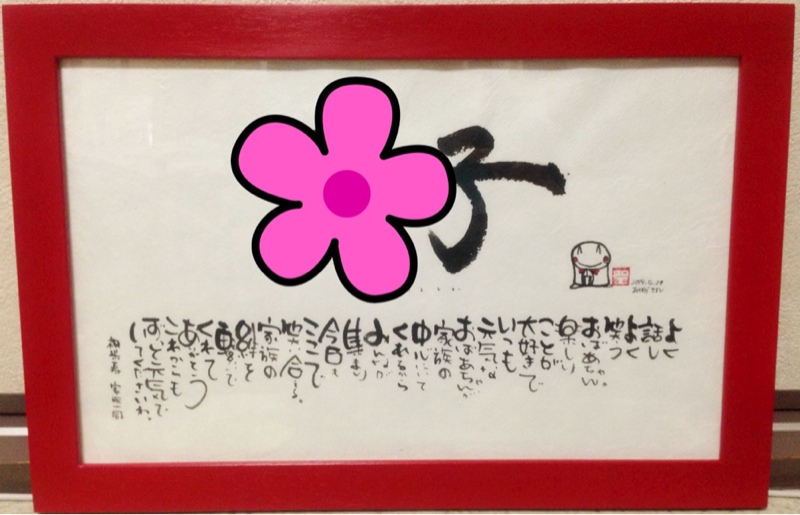 子
よく
話し
よく
笑う
おばあちゃん。
楽しい
ことが
大好きで
いつも
元気な
おばあちゃん。
家族の
中心にいて
くれるから
みんなが
集まり
今日も
ここで
笑い合える。
家族の
絆を
繋いで
くれて
ありがとう
これからも
ずっと元気で
いてくださいね。
家族一同